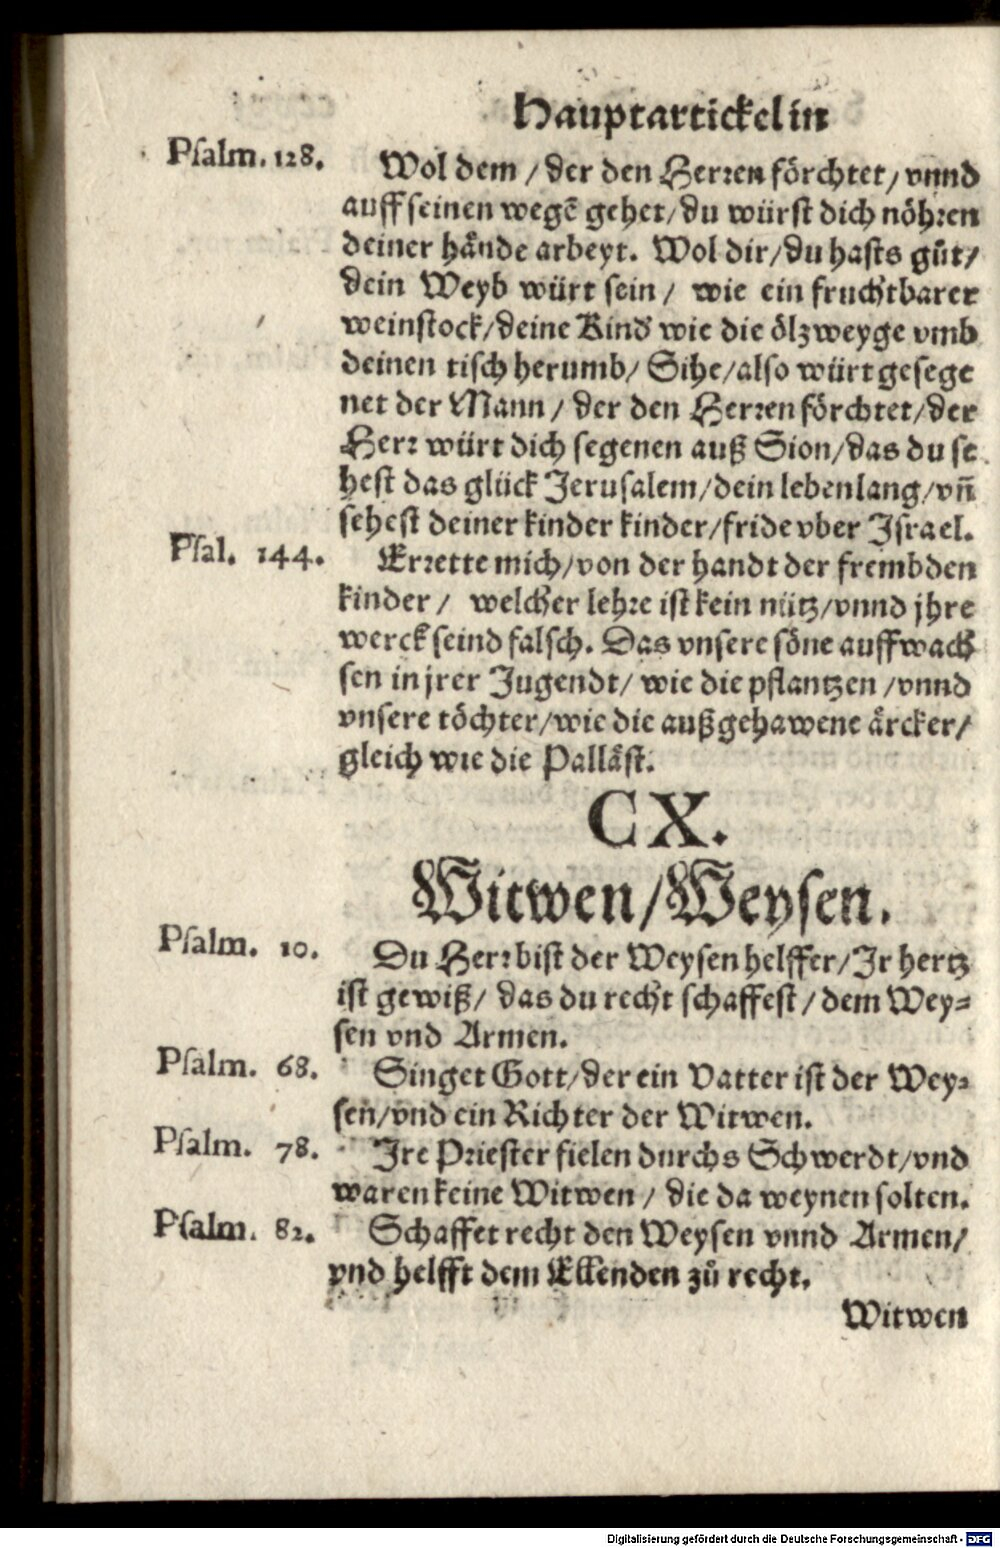 Hauptartickel in
Psalm. 128. Wol dem / der den Herren förchtet / vnnd
auff seinen wegē gehet / du würst dich nöhren
deiner hånde arbeyt. Wol dir / du hasts gůt /
dein Weyb würt sein / wie ein fruchtbarer
weinstock / deine Kind wie die ölzweyge vmb
deinen tisch herumb / Sihe / also würt gesege
net der Mann / der den Herren förchtet / der
Herr würt dich segenen auß Sion / das du se
hest das glück Jerusalem / dein leben lang / vñ
sehest deiner kinder kinder / fride vber Israel.
Psal. 144. Errette mich / von der handt der frembden
kinder / welcher lehre ist kein nütz / vnnd jhre
werck seind falsch. Das vnsere söne auffwach
sen in jrer Jugendt / wie die pflantzen / vnnd
vnsere töchter / wie die außgehawene årcker /
gleich wie die Pallåst.
CX.
Witwen / Weysen.
Psalm. 10. Du Herr bist der Weysen helffer / Ir hertz
ist gewiß / das du recht schaffest / dem Wey-
sen vnd Armen.
Psalm. 68. Singet Gott / der ein Vatter ist der Wey-
sen / vnd ein Richter der Witwen.
Psalm. 78. Ire Priester fielen durchs Schwerdt / vnd
waren keine Witwen / die da weynen solten.
Psalm. 82. Schaffet recht den Weysen vnnd Armen /
vnd helfft dem Ellenden zů recht.
Witwen
Digitalisierung gefördert durch die Deutsche Forschungsgemeinschaft - DFG